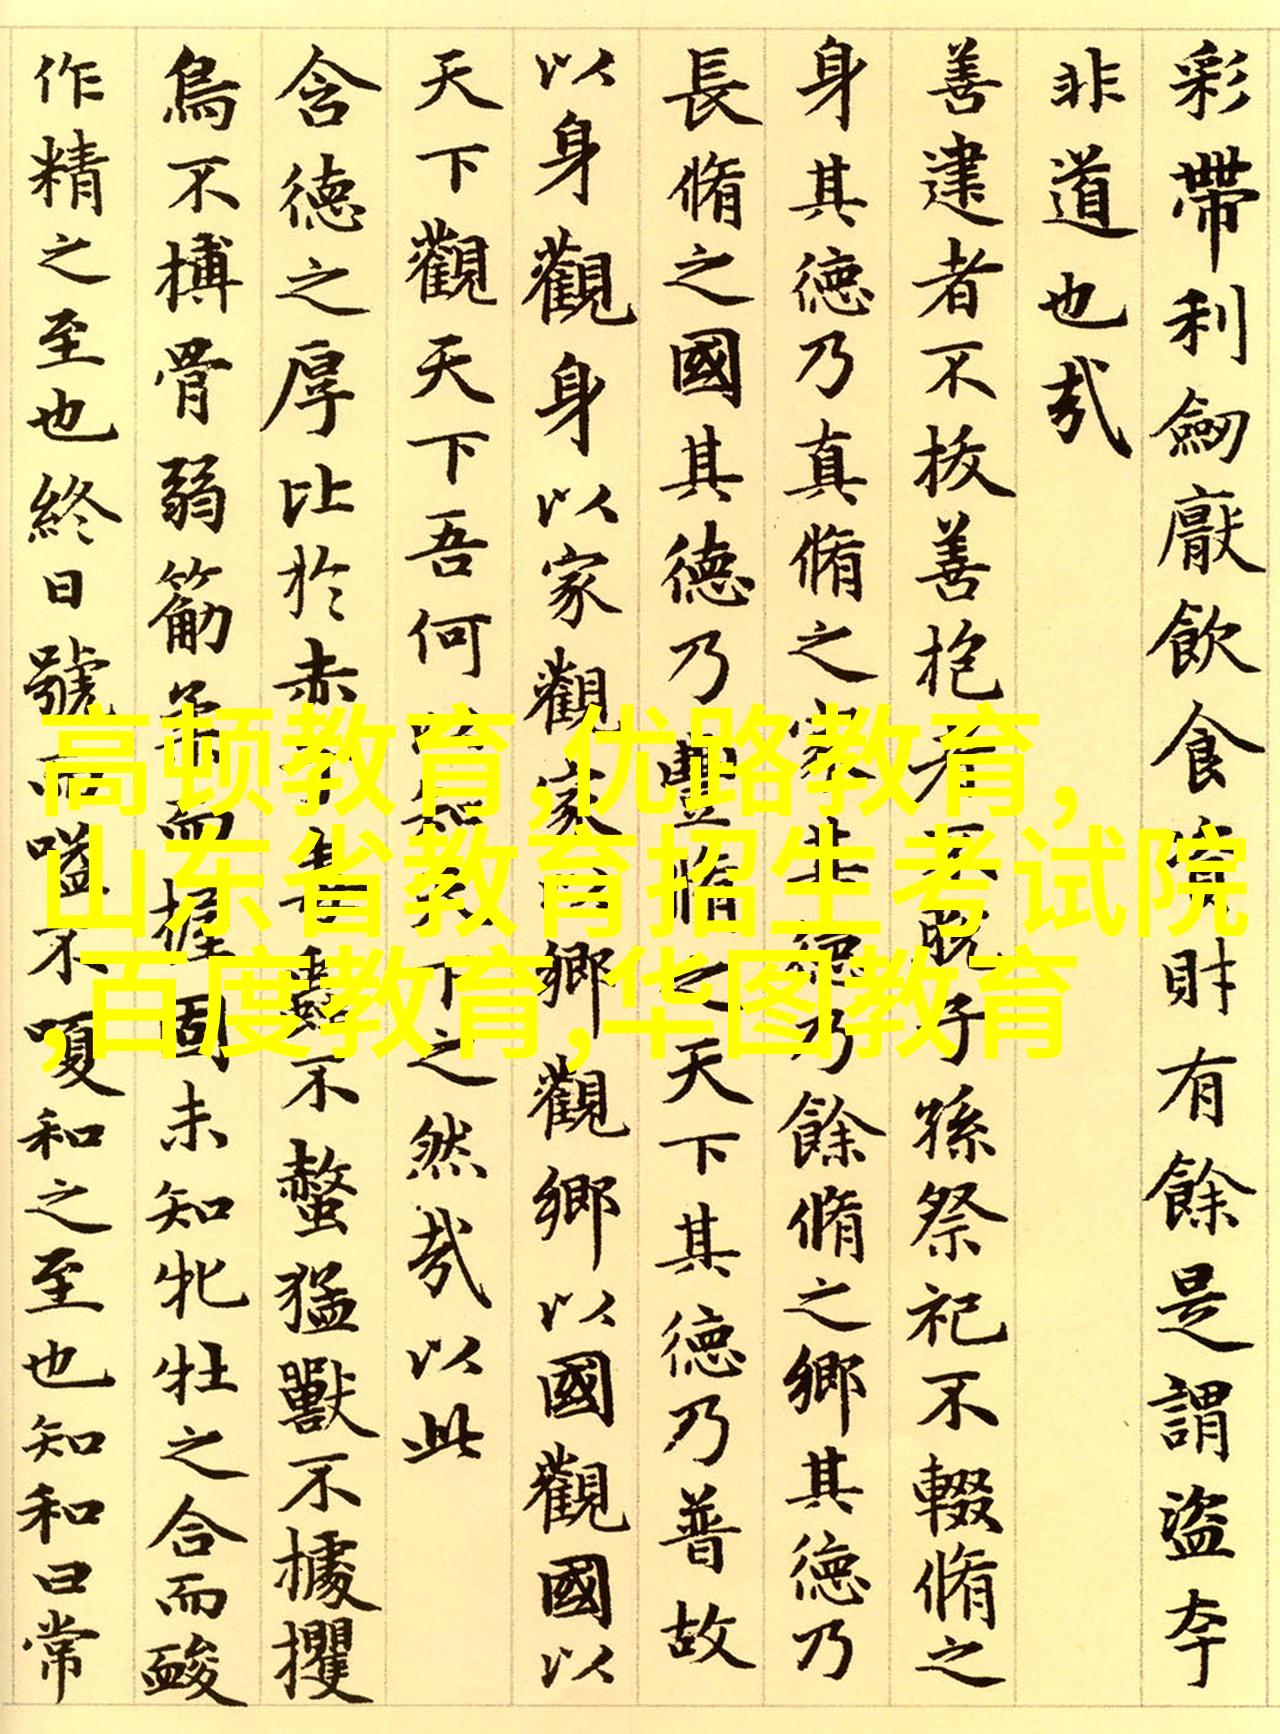 彩帶利劒厭飲食資財有餘是謂盜夸
非道也哉
善建者不拔善抱者不脫子孫祭祀不輟脩之
身其德乃真脩之家其德乃餘脩之鄉其德乃
長脩之國其德乃豐脩之天下其德乃普故
以身觀身以家觀家以鄉觀鄉以國觀國以
天下觀天下吾何以知天下之然哉以此
含德之厚比於赤子毒蟲不螫猛獸不據攫
鳥不搏骨弱筋柔而握固未知牝牡之合而酸
作精之至也終日號而嗌不嗄和之至也知和曰常
高顿教育,优路教育,
山东省教育招生考试院
,百度教育,华图教育